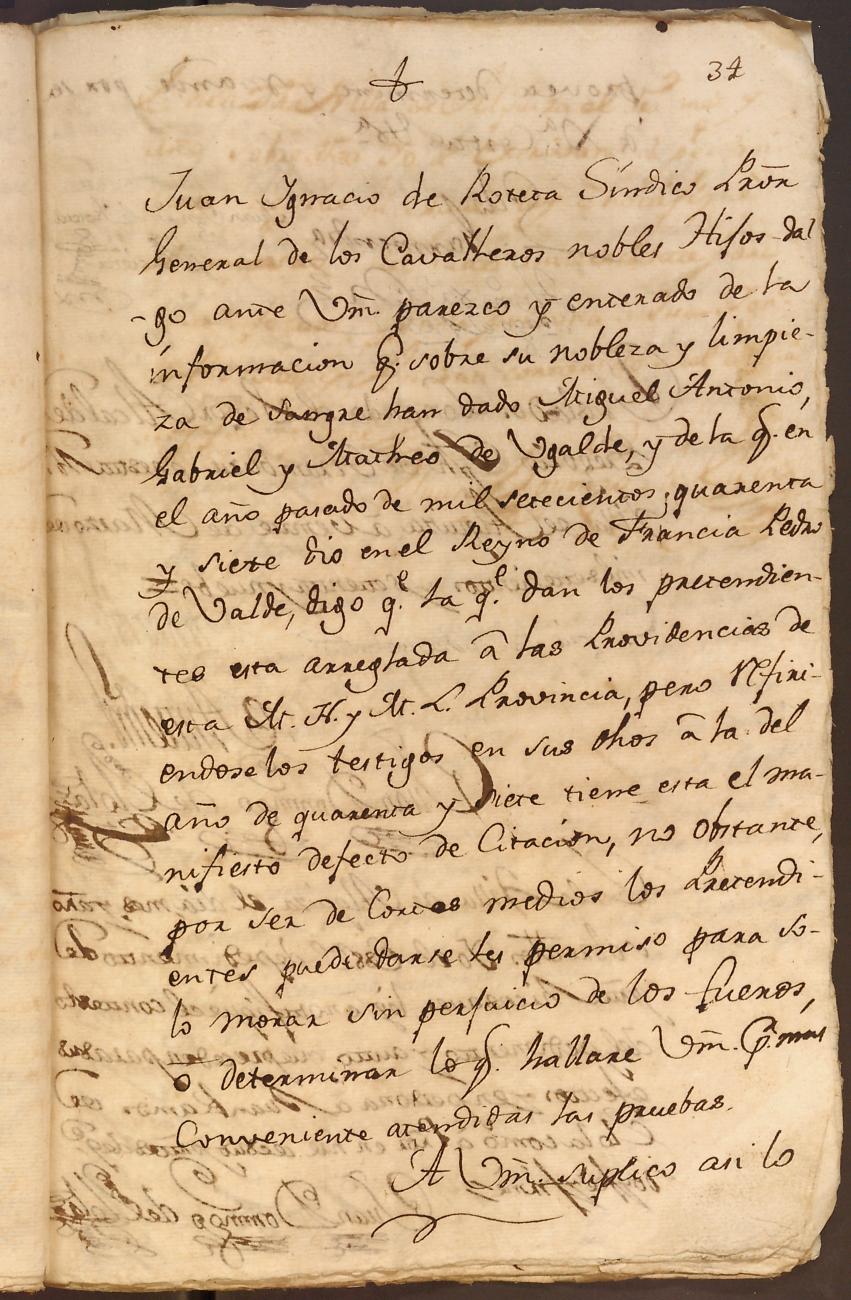 34
Juan Ygnacio de Roteta Síndico Prõr
General de los Cavalleros nobles Hijos dal
-go ante Vm. parezco y enterado de la
informacion q.̃ sobre su nobleza y limpie-
za de sangre han dado Miguel Antonio,
Gabriel y Matheo de Ugalde, y de la q.̃ en
el año pasado de mil setecientos, quarenta
y siete dio en el Reyno de Francia Pedro
de Valde, digo q.e la q.e dan los pretendien-
tes esta arreglada â las Providencias de
esta M. N. y M. L. Provincia, pero refiri-
endose los testigos en sus dhos â la del
año de quarenta y siete tiene esta el ma-
nifiesto defecto de Citacion, no obstante,
por ser de Cortos medios los Pretendi-
entes puede darse les permiso para so-
lo morar sin perjuicio de los fueros,
ô determinar lo q.̃ hallare Vm. p.r mas
Conveniente atendidas las pruebas.
A Vm. suplico asi lo